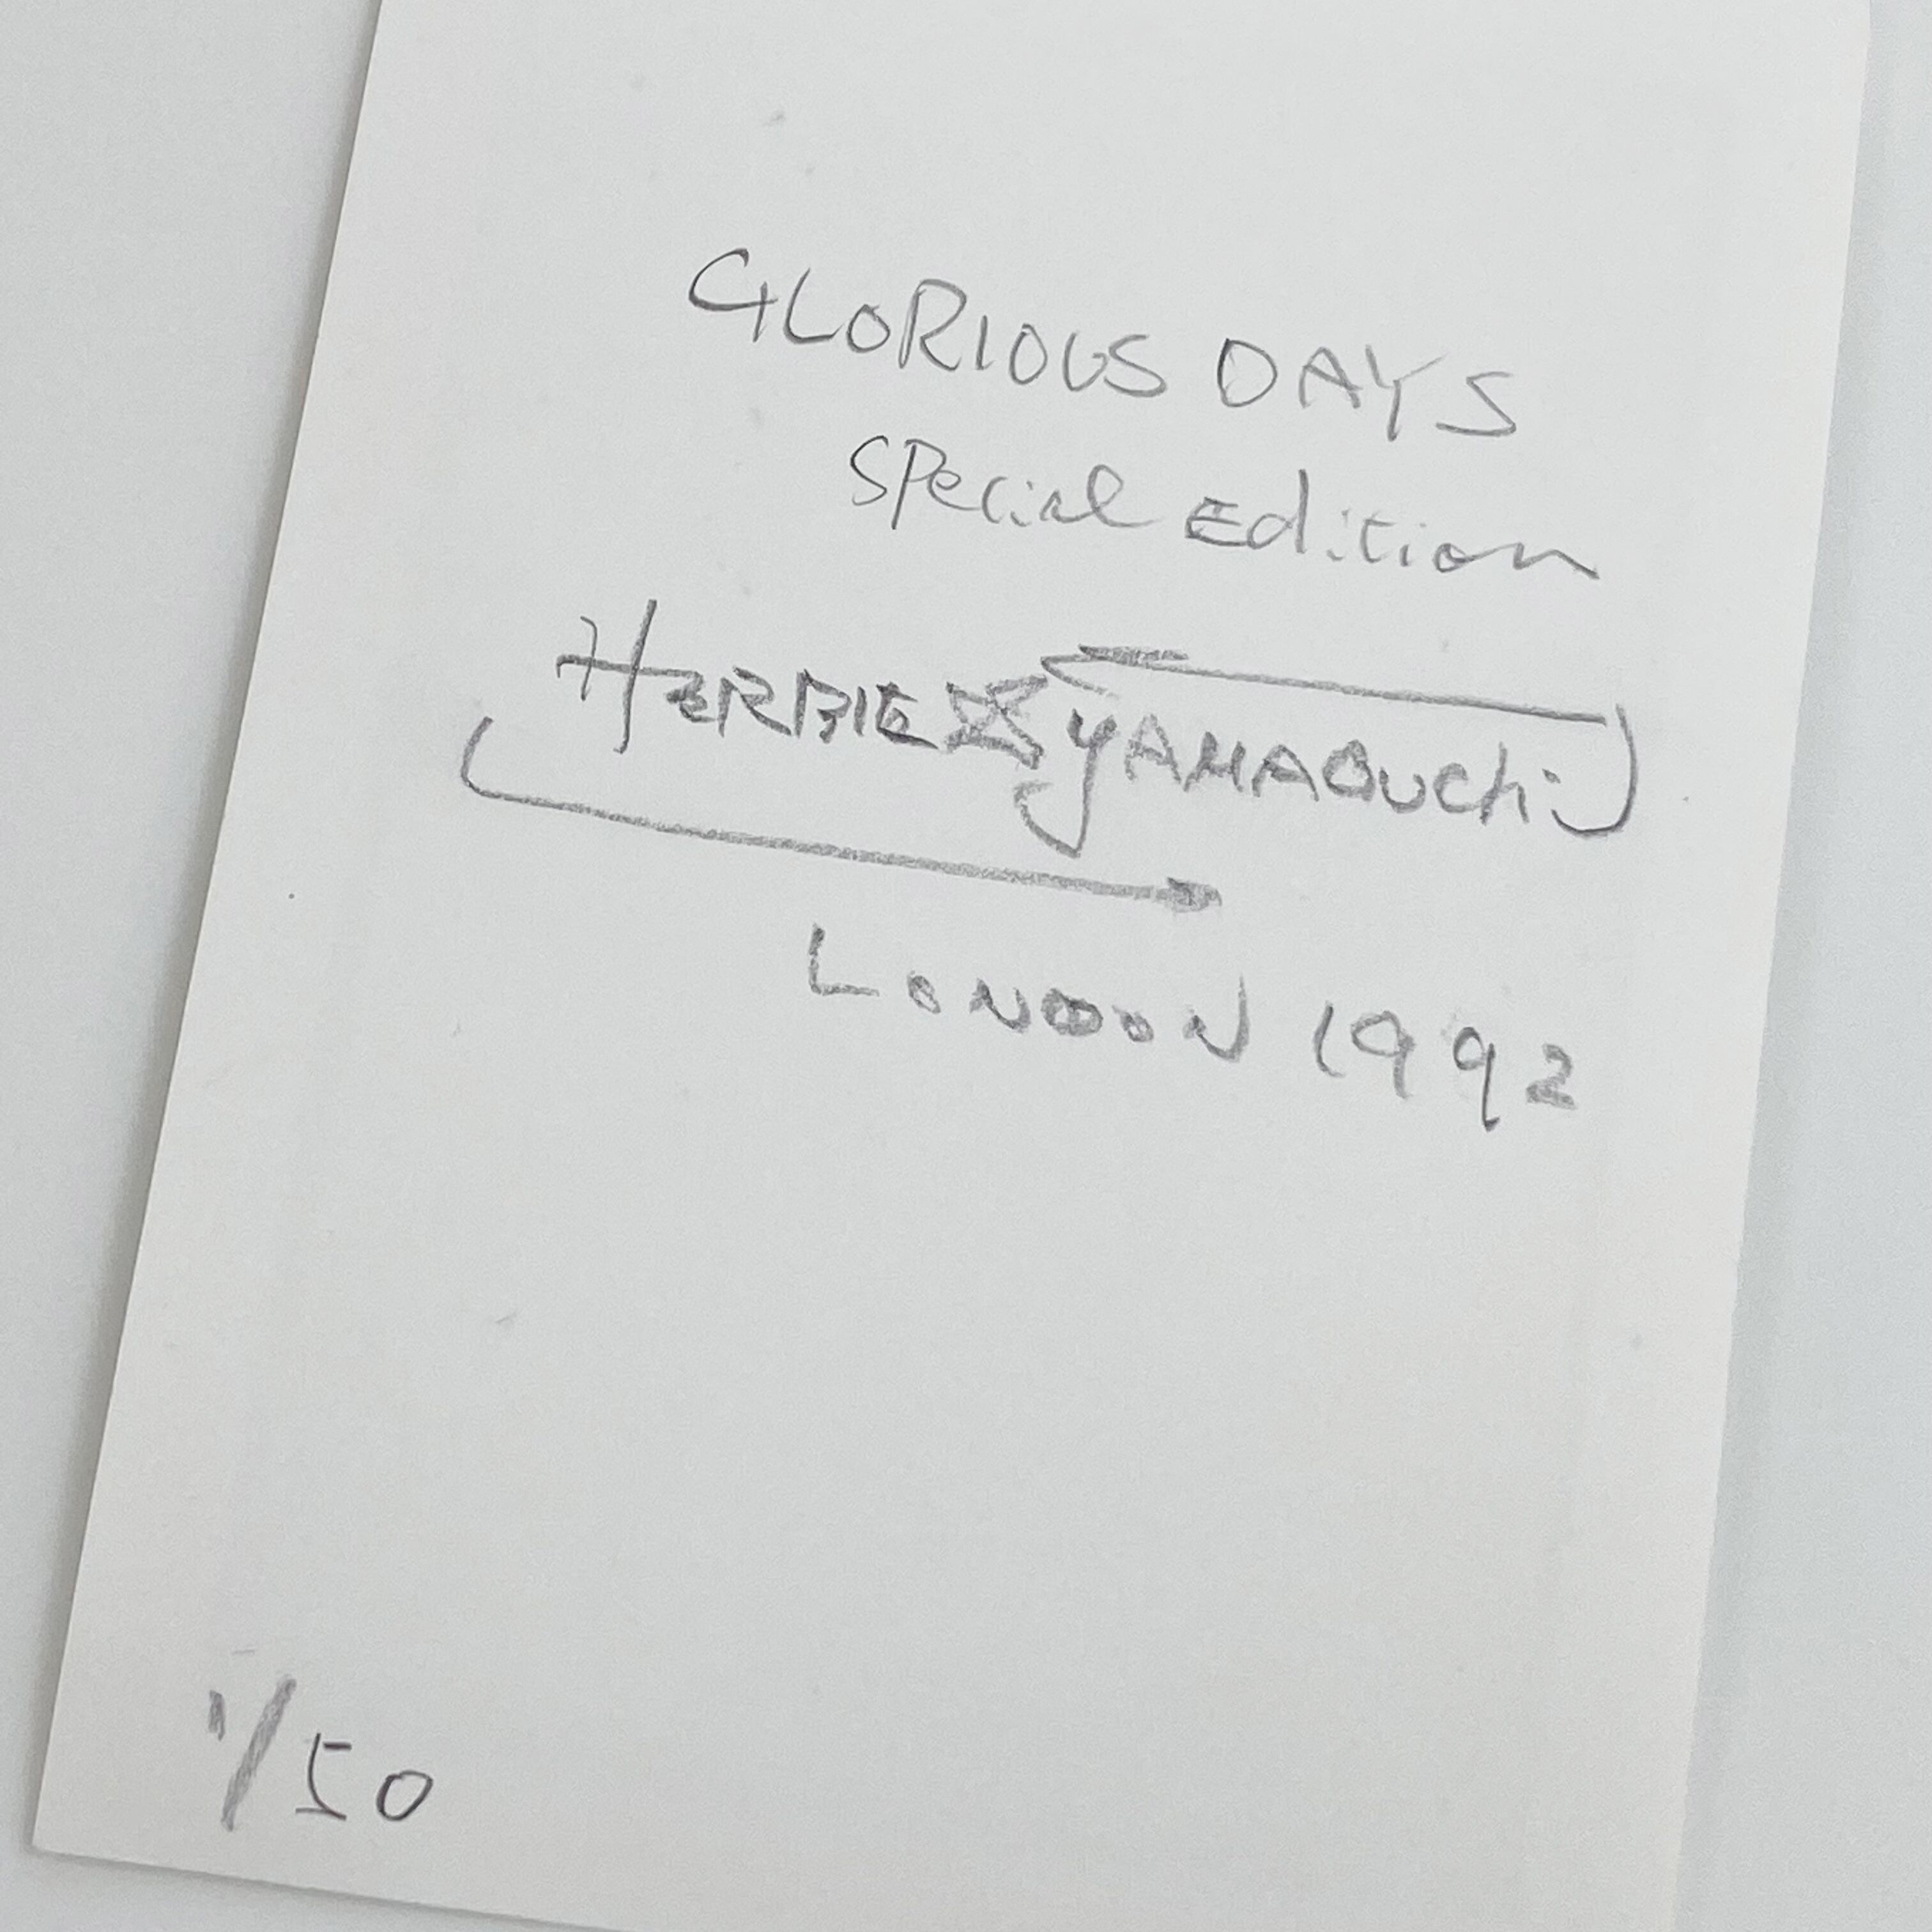 GLORIOUS DAYS
Special Edition
HERBIE YAMAGUCHI
LONDON 1992
1/50